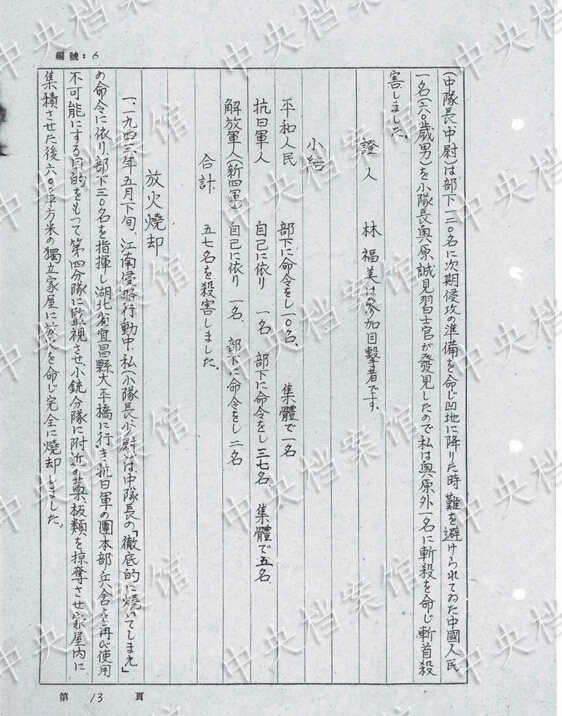 編號：6
（中隊長中尉）は部下一二〇名に次期侵攻の準備を命じ凹地に降りた時難を避けられてゐた中國人民
一名（六〇歳男）を小隊長與原誠見習士官が發見したので私は與原外一名に斬殺を命じ斬首殺
害しました。
證人　林福美は参加目撃者です。
小結
平和人民　部下に命令をし一〇名、集體で一名
抗日軍人　自己に依り　一名　部下に命令をし三七名、集體で五名、
解放軍人（新四軍）自己に依り　一名、部下に命令をし二名
合計　五七名を殺害しました。
放火燒却
一、一九四三年五月下旬、江南侵略行動中、私（小隊長少尉）は中隊長の「徹底的に燒いてしまえ」
の命令に依り、部下三〇名を指揮し湖北省宜昌縣大平橋に行き、抗日軍の團本部兵舎を再び使用
不可能にする目的をもつて第四分隊に監視させ小銃分隊に附近の藁、板類を掠奪させ家屋内に
集積させた後六〇平方米の獨立家屋に放火を命じ完全に燒却しました。
第 13 頁
中央档案馆